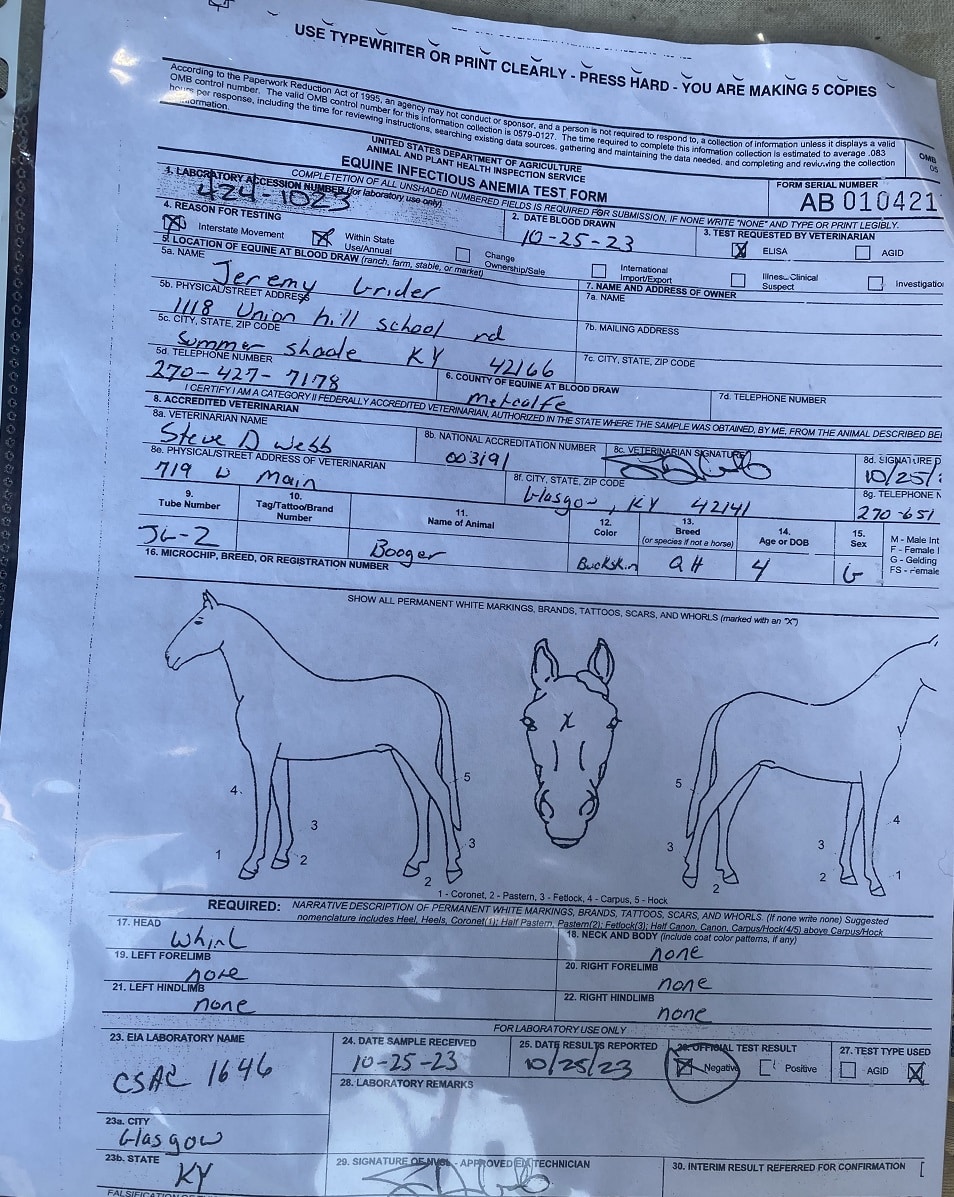 USE TYPEWRITER OR PRINT CLEARLY - PRESS HARD - YOU ARE MAKING 5 COPIES
According to the Paperwork Reduction Act of 1995, an agency may not conduct or sponsor, and a person is not required to respond to, a collection of information unless it displays a valid
OMB control number. The valid OMB control number for this information collection is 0579-0127. The time required to complete this information collection is estimated to average .083
hours per response, including the time for reviewing instructions, searching existing data sources, gathering and maintaining the data needed, and completing and reviewing the collection
information.
OMB
05
UNITED STATES DEPARTMENT OF AGRICULTURE
ANIMAL AND PLANT HEALTH INSPECTION SERVICE
EQUINE INFECTIOUS ANEMIA TEST FORM
COMPLETETION OF ALL UNSHADED NUMBERED FIELDS IS REQUIRED FOR SUBMISSION, IF NONE WRITE "NONE" AND TYPE OR PRINT LEGIBLY.
FORM SERIAL NUMBER
AB 010421
1. LABORATORY ACCESSION NUMBER (for laboratory use only)
424-1023
2. DATE BLOOD DRAWN
10-25-23
3. TEST REQUESTED BY VETERINARIAN
X ELISA
AGID
4. REASON FOR TESTING
X Interstate Movement
X Within State Use/Annual
Change Ownership/Sale
International Import/Export
Clinical Suspect
Investigatio
5. LOCATION OF EQUINE AT BLOOD DRAW (ranch, farm, stable, or market)
5a. NAME
Jeremy Grider
5b. PHYSICAL/STREET ADDRESS
1118 Union hill school rd
5c. CITY, STATE, ZIP CODE
Summer Shade KY 42166
5d. TELEPHONE NUMBER
270-427-7178
6. COUNTY OF EQUINE AT BLOOD DRAW
Metcalfe
7. NAME AND ADDRESS OF OWNER
7a. NAME
7b. MAILING ADDRESS
7c. CITY, STATE, ZIP CODE
7d. TELEPHONE NUMBER
I CERTIFY I AM A CATEGORY II FEDERALLY ACCREDITED VETERINARIAN, AUTHORIZED IN THE STATE WHERE THE SAMPLE WAS OBTAINED, BY ME, FROM THE ANIMAL DESCRIBED BE
8. ACCREDITED VETERINARIAN
8a. VETERINARIAN NAME
Steve D Webb
8b. NATIONAL ACCREDITATION NUMBER
003191
8c. VETERINARIAN SIGNATURE
8d. SIGNATURE D
10/25/
8e. PHYSICAL/STREET ADDRESS OF VETERINARIAN
719 W Main
8f. CITY, STATE, ZIP CODE
Glasgow, KY 42141
8g. TELEPHONE N
270-651
9. Tube Number
JG-2
10. Tag/Tattoo/Brand Number
11. Name of Animal
Booger
12. Color
Buckskin
13. Breed (or species if not a horse)
QH
14. Age or DOB
4
15. Sex
G
M - Male Int
F - Female I
G - Gelding
FS - Female
16. MICROCHIP, BREED, OR REGISTRATION NUMBER
SHOW ALL PERMANENT WHITE MARKINGS, BRANDS, TATTOOS, SCARS, AND WHORLS (marked with an "X")
X
4
5
3
3
1
2
2
5
4
3
3
2
2
1
1 - Coronet, 2 - Pastern, 3 - Fetlock, 4 - Carpus, 5 - Hock
REQUIRED: NARRATIVE DESCRIPTION OF PERMANENT WHITE MARKINGS, BRANDS, TATTOOS, SCARS, AND WHORLS. (If none write none) Suggested
nomenclature includes Heel, Heels, Coronet(1); Half Pastern, Pastern(2); Fetlock(3); Half Canon, Canon, Carpus/Hock(4/5) above Carpus/Hock
17. HEAD
Whirl
18. NECK AND BODY (include coat color patterns, if any)
none
19. LEFT FORELIMB
none
20. RIGHT FORELIMB
none
21. LEFT HINDLIMB
none
22. RIGHT HINDLIMB
none
FOR LABORATORY USE ONLY
23. EIA LABORATORY NAME
CSAC 1646
24. DATE SAMPLE RECEIVED
10-25-23
25. DATE RESULTS REPORTED
10/25/23
26. OFFICIAL TEST RESULT
X Negative
Positive
27. TEST TYPE USED
AGID
X
28. LABORATORY REMARKS
23a. CITY
Glasgow
23b. STATE
KY
29. SIGNATURE OF NVSL - APPROVED EIA TECHNICIAN
30. INTERIM RESULT REFERRED FOR CONFIRMATION